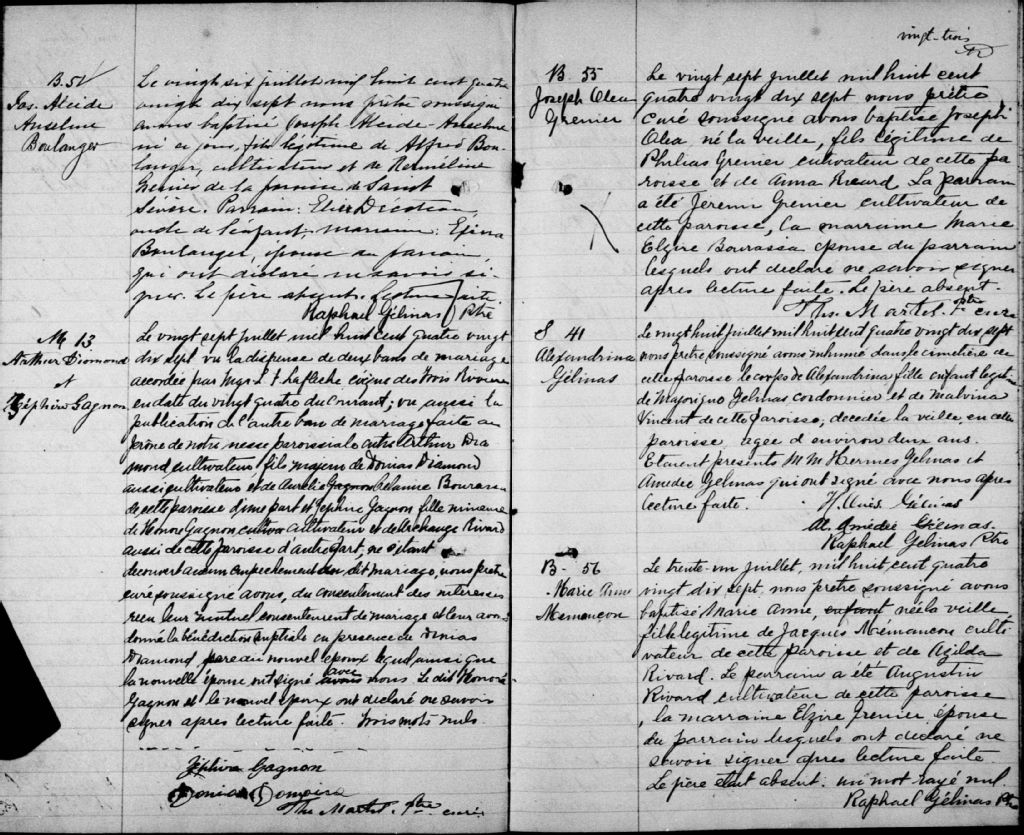 B. 54
Jos. Alcide
Anselme
Boulanger
Le vingt six juillet mil huit cent quatre
vingt dix sept nous prêtre soussigné
avons baptisé Joseph Alcide Anselme
né ce jour, fils légitime de Alfred Bou-
langer, cultivateur et de Herméline
de la paroisse de Saint
Sévère. Parrain:
oncle de l'enfant, marraine:
Boulanger, épouse du parrain,
qui ont déclaré ne savoir si-
gner. Le père absent. Lecture faite.
Raphael Gélinas Ptre
M 13
Arthur Diamond
et
Zéphire Gagnon
Le vingt sept juillet mil huit cent quatre vingt
dix sept vu la dispense de deux bans de mariage
accordée par Mgr L. F. Lafleche évêque des Trois Rivieres
en date du vingt quatre du courant; vu aussi la
publication de l'autre ban de mariage faite au
prône de notre messe paroissiale entre Arthur Dia
mond cultivateur, fils majeur de Donias Diamond
aussi cultivateur et de Aurelie Gagnon Bourassa
de cette paroisse d'une part et Zephire Gagnon fille mineure
de Honoré Gagnon cultivateur et de Archange Rivard
aussi de cette paroisse d'autre part, ne s'étant
decouvert aucun empechement au dit mariage, nous prêtre
curé soussigné avons, du consentement des interessés
recu leur mutuel consentement de mariage et leur avons
donné la bénédiction nuptiale en presence de Donias
Diamond pere du nouvel epoux lequel ainsi que
la nouvelle épouse ont signé avec nous. Le dit Honoré
Gagnon et le nouvel epoux ont déclaré ne savoir
signer apres lecture faite. Trois mots nuls
Zéphire Gagnon
Donias
Ths. Martel Ptre curé
vingt-trois
B 55
Joseph Olea
Grenier
Le vingt sept juillet mil huit cent
quatre vingt dix sept nous prêtre
curé soussigné avons baptisé Joseph
Olea né la veille, fils légitime de
Philias Grenier cultivateur de cette pa
roisse et de Anna Ricard. Le parrain
a été Jeremi Grenier cultivateur de
cette paroisse, la marraine Marie
Elzire Bourassa epouse du parrain
lesquels ont declaré ne savoir signer
apres lecture faite. Le père absent.
Ths. Martel Ptre curé
S 41
Alexandrina
Gélinas
Le vingt huit juillet mil huit cent quatre vingt dix sept
nous prêtre soussigné avons inhumé dans le cimetière de
cette paroisse le corps de Alexandrina fille enfant legitime
de Majorique Gelinas cordonnier et de Malvina
Vincent de cette paroisse, decedée la veille, en cette
paroisse agee d environ deux ans.
Etaient presents M M Hermes Gelinas et
Amedee Gelinas qui ont signé avec nous apres
lecture faite. Gélinas
Amédée Gélinas.
Raphael Gélinas Ptre
B - 56
Marie Anne
Mémançon
Le trente-un juillet, mil huit cent quatre
vingt dix sept nous prêtre soussigné avons
baptisé Marie Anne, enfant née la veille,
fille legitime de Jacques Mémancon culti
vateur de cette paroisse et de Azilda
Rivard. Le parrain a été Augustin
Rivard cultivateur de cette paroisse
, la marraine Elzire Grenier épouse
du parrain lesquels ont declaré ne
savoir signer apres lecture faite
Le père était absent. un mot rayé nul.
Raphael Gélinas Ptre